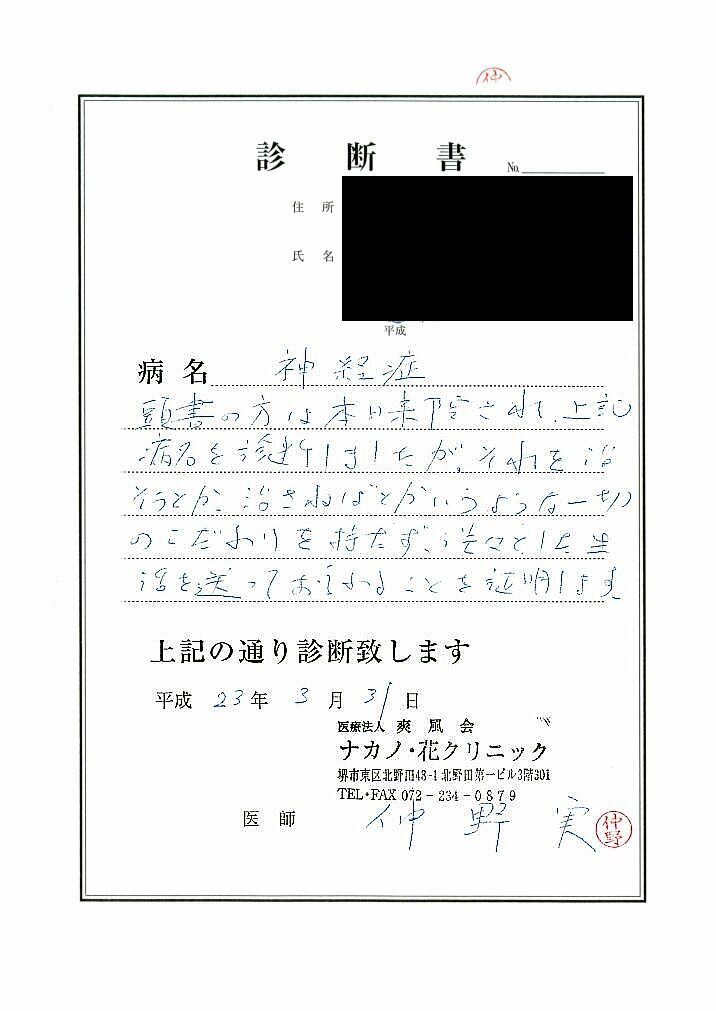 仲
診断書 No.
住所
氏名
平成
病名 神経症
頭書の方は本日来院されて、上記
病名を診断しましたが、それを治
そうとか、治さねばとかいうような一切
のこだわりを持たず、淡々とした生
活を送っておられることを証明します
上記の通り診断致します
平成 23年 3月 31日
医療法人 爽風会
ナカノ・花クリニック
堺市東区北野田48-1 北野田第一ビル3階301
TEL・FAX 072-234-0879
医師 仲野 実
仲野